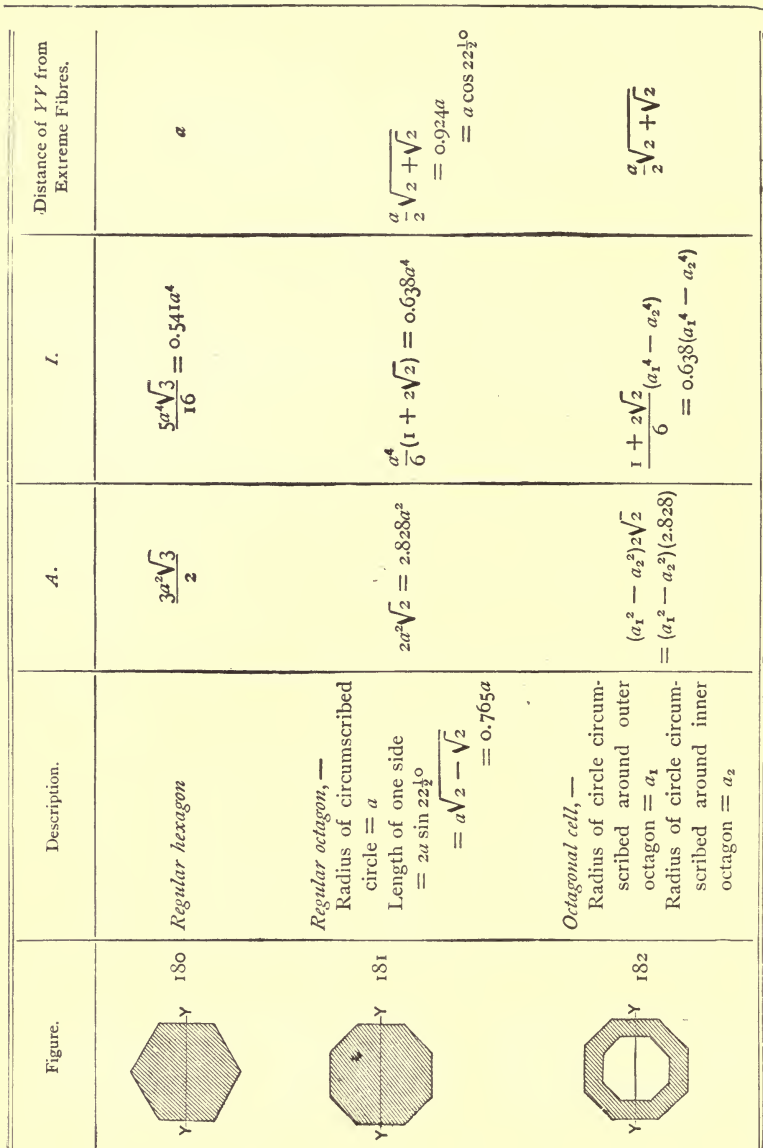 Figure.
Description.
A.
I.
Distance of YY from
Extreme Fibres.
Y Y
180
Regular hexagon
3a²√3/2
5a⁴√3/16 = 0.541a⁴
a
Y Y
181
Regular octagon,—
Radius of circumscribed
circle = a
Length of one side
= 2a sin 22½°
= a√(2 − √2)
= 0.765a
2a²√2 = 2.828a²
a⁴/6(1 + 2√2) = 0.638a⁴
a/2√(2 + √2)
= 0.924a
= a cos 22½°
Y Y
182
Octagonal cell,—
Radius of circle circum-
scribed around outer
octagon = a₁
Radius of circle circum-
scribed around inner
octagon = a₂
(a₁² − a₂²)2√2
= (a₁² − a₂²)(2.828)
(1 + 2√2)/6(a₁⁴ − a₂⁴)
= 0.638(a₁⁴ − a₂⁴)
a/2√(2 + √2)